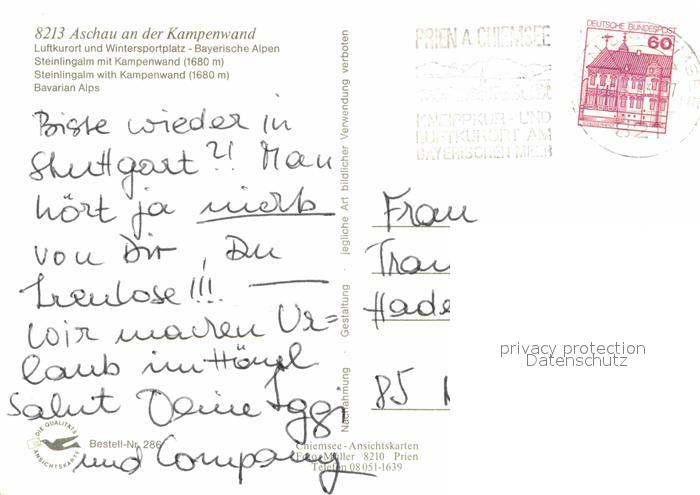 8213 Aschau an der Kampenwand
Luftkurort und Wintersportplatz - Bayerische Alpen
Steinlingalm mit Kampenwand (1680 m)
Steinlingalm with Kampenwand (1680 m)
Bavarian Alps
PRIEN A. CHIEMSEE
KNEIPPKUR - UND
LUFTKURORT AM
BAYERISCHEN MEER
DEUTSCHE BUNDESPOST
60
821
Biste wieder in
Stuttgart?! Man
hört ja nicht
von Dir, Du
treulose!!!.
Wir machen Ur=
laub im
Salut Deine Iggi
und Company
Frau
Trau
Hade
85
privacy protection
Datenschutz
Nachahmung · Gestaltung · jegliche Art bildlicher Verwendung verboten
DIE QUALITÄTS
ANSICHTSKARTE
Bestell-Nr. 286
Chiemsee - Ansichtskarten
Foto Müller 8210 Prien
Telefon 08051-1639